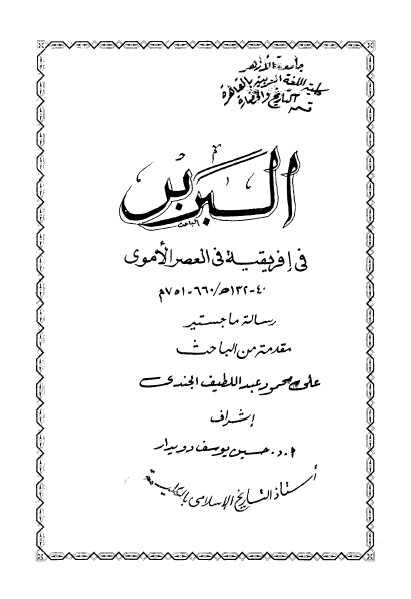 جامعة الأزهر
كلية اللغة العربية بالقاهرة
قسم التاريخ والحضارة
البربر
فى إفريقية فى العصر الأموى
٤٠-١٣٢هـ/٦٦٠-٧٥١م
رسالة ماجستير
مقدمة من الباحث
محمود عبد اللطيف الجندى
إشراف
ا.د. حسين يوسف دويدار
أستاذ التاريخ الإسلامى بالكلية